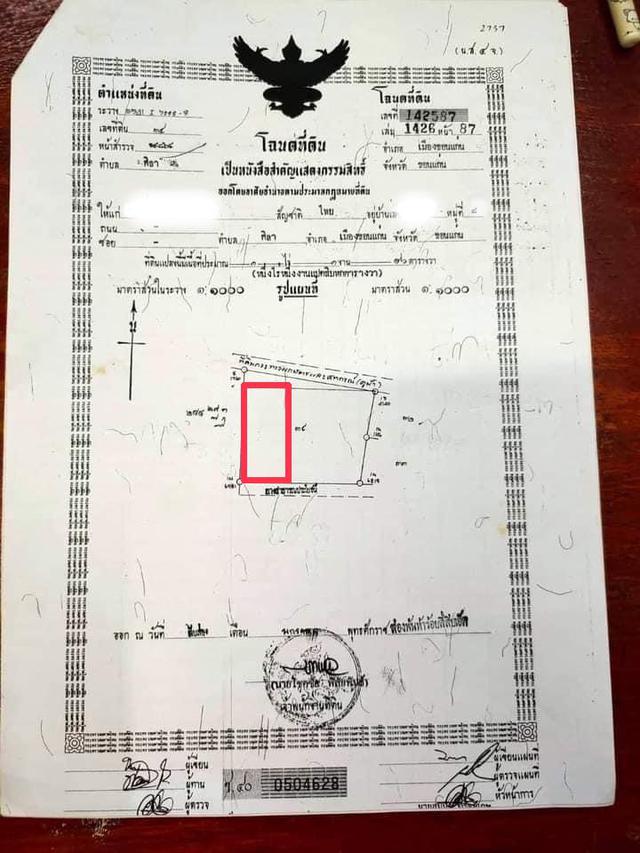 2757
(น.ส.๔ จ.)
ตำแหน่งที่ดิน
ระวาง
เลขที่ดิน ๓๔
หน้าสำรวจ
ตำบล ศิลา
โฉนดที่ดิน
เลขที่ 142587
เล่ม 1426 หน้า 87
อำเภอ เมืองขอนแก่น
จังหวัด ขอนแก่น
โฉนดที่ดิน
เป็นหนังสือสำคัญแสดงกรรมสิทธิ์
ออกโดยอาศัยอำนาจตามประมวลกฎหมายที่ดิน
ให้แก่ สัญชาติ ไทย อยู่บ้านเลขที่ หมู่ที่
ถนน -
ซอย - ตำบล ศิลา อำเภอ เมืองขอนแก่น จังหวัด ขอนแก่น
ที่ดินแปลงนี้มีเนื้อที่ประมาณ ๑ ไร่ ๑ งาน ๘๖ ตารางวา
(หนึ่งไร่หนึ่งงานแปดสิบหกตารางวา)
มาตราส่วนในระวาง ๑:๑๐๐๐ รูปแผนที่ มาตราส่วน ๑:๑๐๐๐
น
๓๔
ทางสาธารณประโยชน์
ออก ณ วันที่ เดือน มกราคม พุทธศักราช สองพันห้าร้อยสี่สิบเอ็ด
เจ้าพนักงานที่ดิน
ผู้เขียน
ผู้ทาน
ผู้ตรวจ
ช.๔๐ 0504628
ผู้เขียนแผนที่
ผู้ตรวจแผนที่
หัวหน้าการ